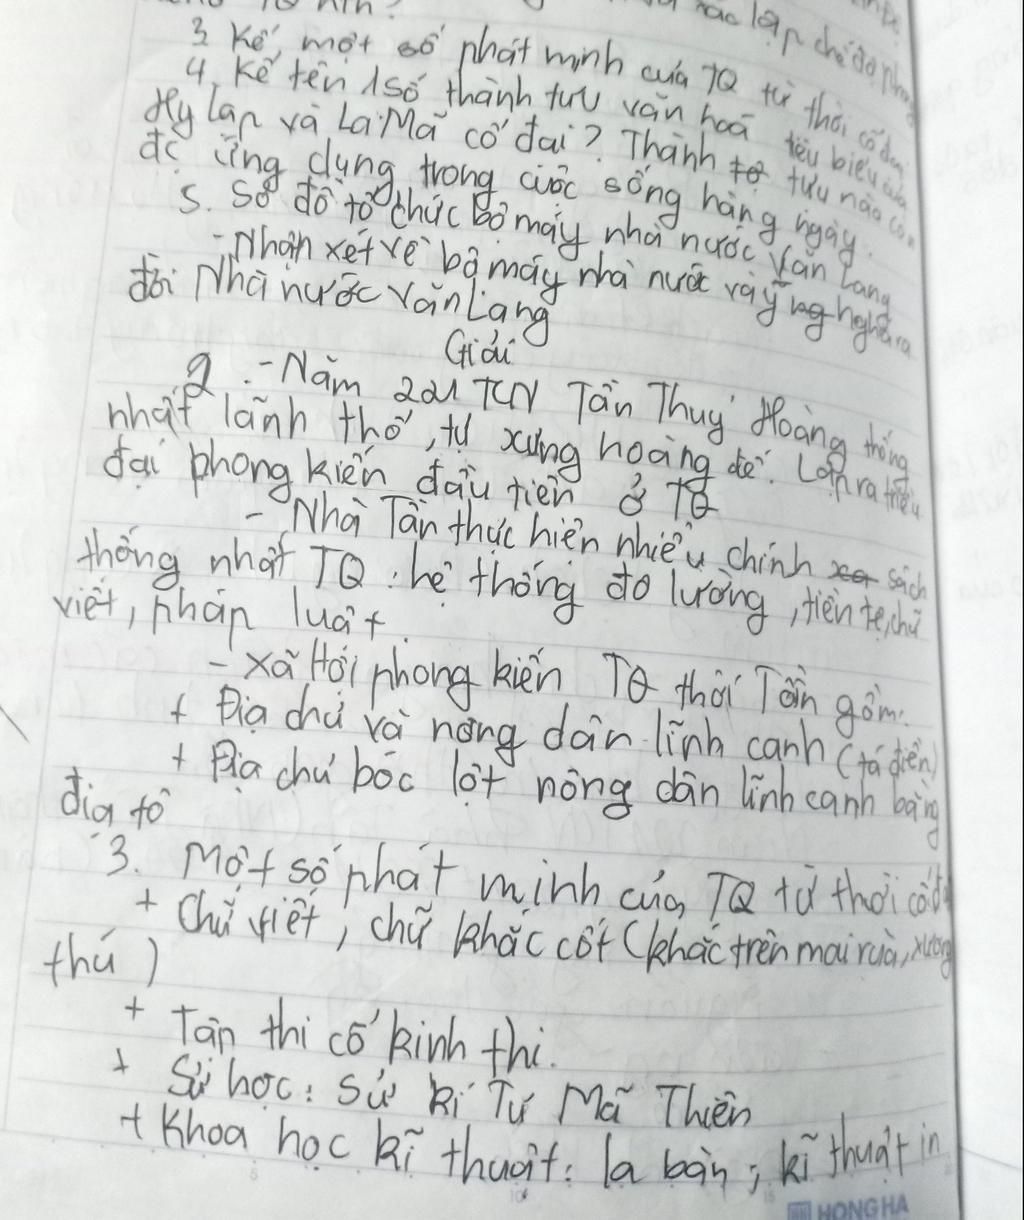 xác lập chế độ phong
3. Kể một số phát minh của TQ từ thời cổ đại
4. Kể tên 1 số thành tựu văn hoá tiêu biểu của
Hy Lạp và La Mã cổ đại? Thành tự tựu nào còn
đc ứng dụng trong cuộc sống hàng ngày.
5. Sơ đồ tổ chức bộ máy nhà nước Văn Lang
- Nhận xét về bộ máy nhà nước và ý ng nghĩa ra
đời Nhà nước Văn Lang
Giải
2. - Năm 221 TCN Tần Thuỷ Hoàng thống
nhất lãnh thổ, tự xưng hoàng đế. Lập ra triều
đại phong kiến đầu tiên ở TQ
- Nhà Tần thực hiện nhiều chính xa sách
thống nhất TQ: hệ thống đo lường, tiền tệ, chữ
viết, pháp luật.
- Xã Hội phong kiến TQ thời Tần gồm:
+ Địa chủ và nông dân lĩnh canh (tá điền)
+ Địa chủ bóc lột nông dân lĩnh canh bằng
địa tô
3. Một số phát minh của TQ từ thời cổ đạ
+ Chữ viết, chữ khắc cốt (khắc trên mai rùa, xương
thú)
+ Tản thi có kinh thi.
+ Sử học: Sử kí Tư Mã Thiên
+ Khoa học kĩ thuật: la bàn; kĩ thuật in
HONG HA